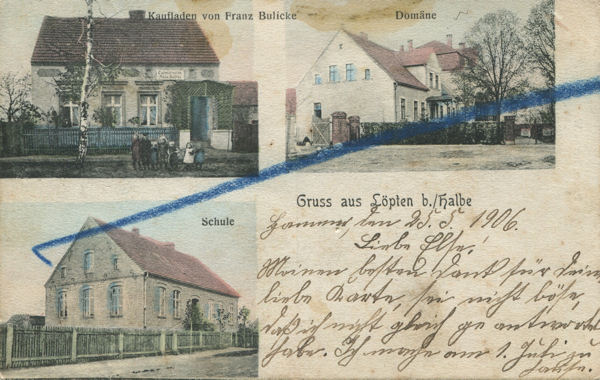 Kaufladen von Franz Bulicke
Domäne
Schule
Gruss aus Löpten b./Halbe
Hammer, den 25.5.1906.
Liebe Else!
Meinen besten Dank für Deine
liebe Karte, sei nicht böse,
daß ich nicht gleich geantwortet
habe. Ich mache am 1. Juli zu
Hause.